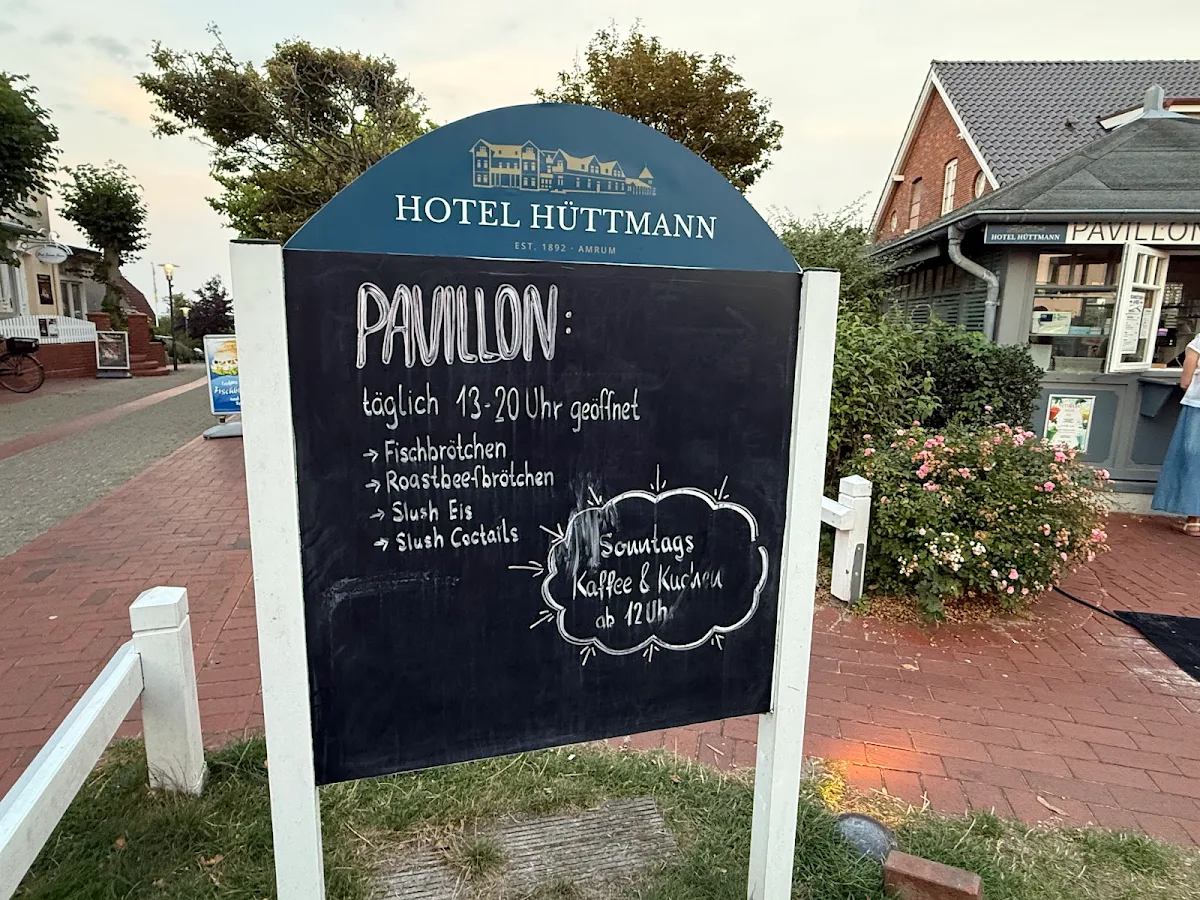 HOTEL HÜTTMANN
EST. 1892 · AMRUM
PAVILLON:
täglich 13-20 Uhr geöffnet
→ Fischbrötchen
→ Roastbeefbrötchen
→ Slush Eis
→ Slush Coctails
Sonntags
Kaffee & Kuchen
ab 12 Uhr
HOTEL HÜTTMANN
PAVILLON